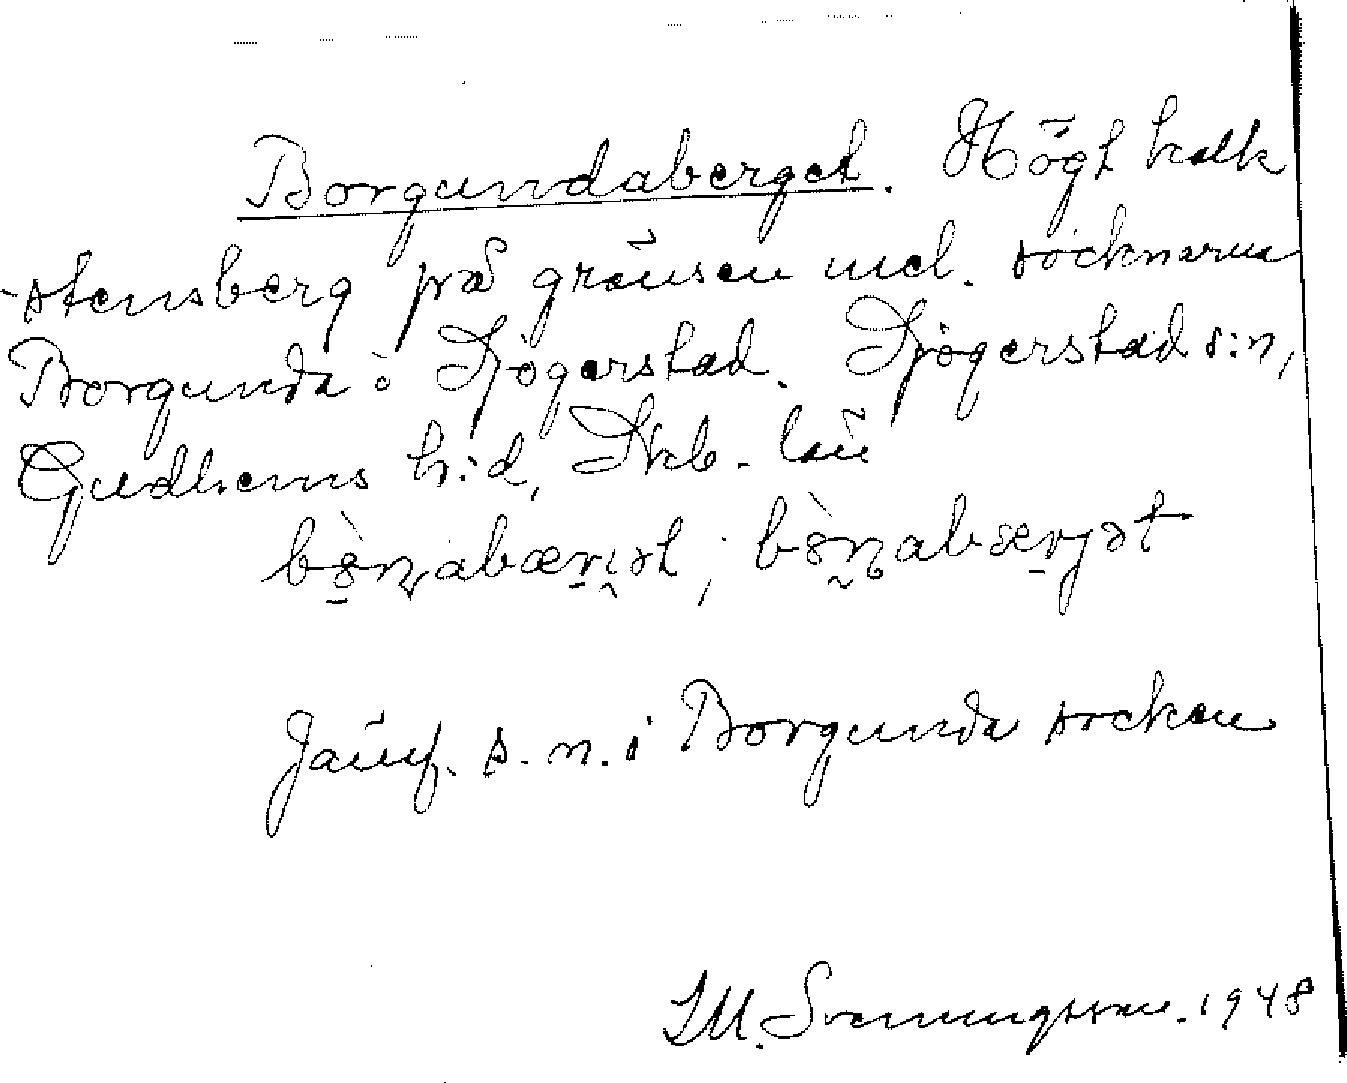 Borgundaberget. Högt kalk
-stensberg på gränsen mel. socknarna
Borgunda o Sjögerstad. Sjögerstad s:n,
Gudhems h:d, Skb. län
Jämf. s. n. i Borgunda socken
M. Svenungsson. 1948